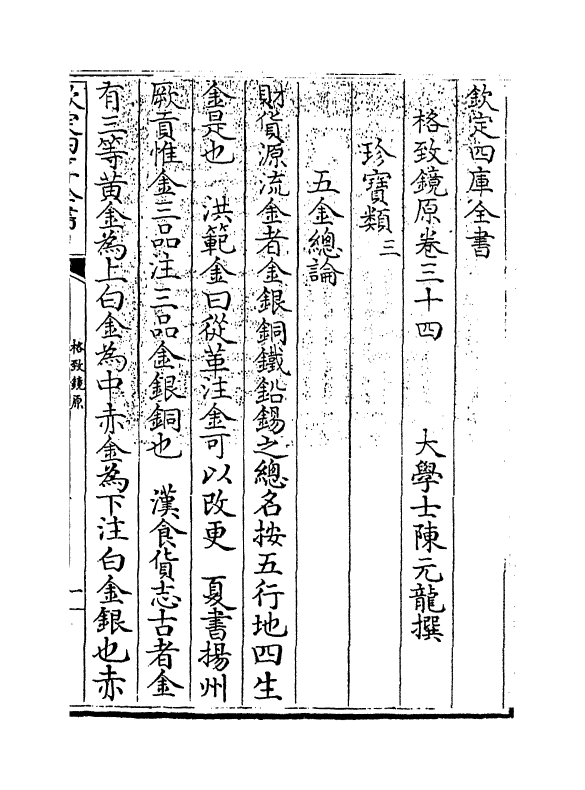 欽定四庫全書
格致鏡原卷三十四　　　大學士陳元龍撰
珍寶類三
五金總論
財貨源流金者金銀銅鐵鉛錫之總名按五行地四生
金是也　洪範金曰從革注金可以改更　夏書揚州
厥貢惟金三品注三品金銀銅也　漢食貨志古者金
有三等黃金為上白金為中赤金為下注白金銀也赤
格致鏡原
一